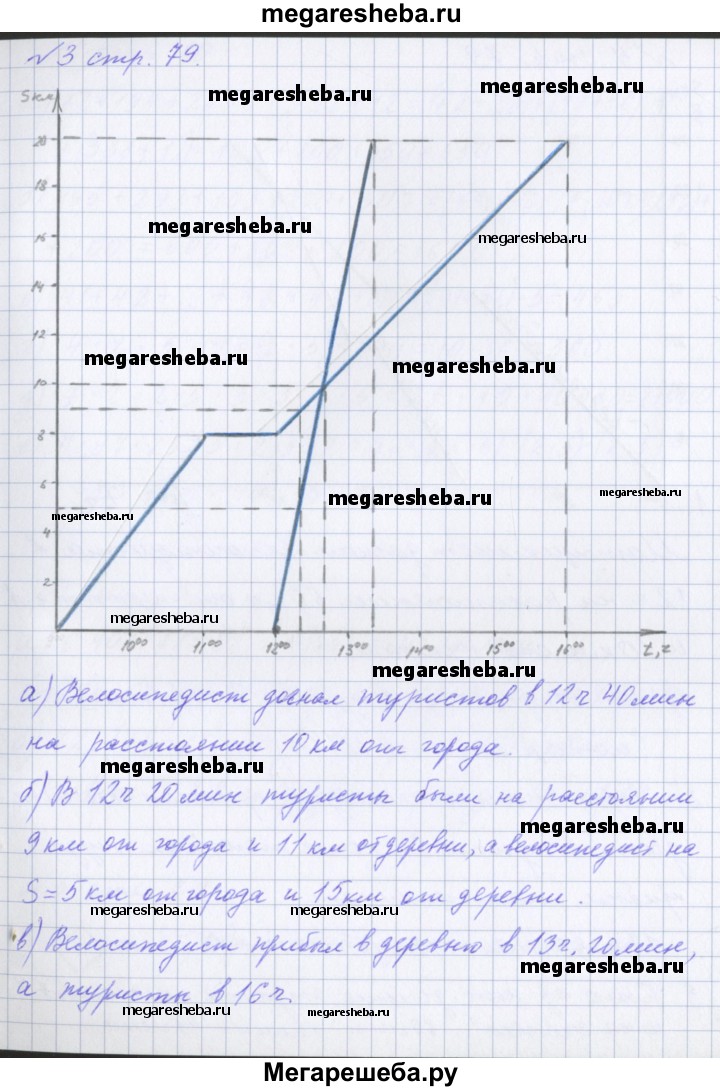 megaresheba.ru
№3 стр. 79.
S км
megaresheba.ru
megaresheba.ru
20
18
megaresheba.ru
16
megaresheba.ru
14
12
megaresheba.ru
megaresheba.ru
10
8
6
megaresheba.ru
megaresheba.ru
megaresheba.ru
4
2
megaresheba.ru
10⁰⁰ 11⁰⁰ 12⁰⁰ 13⁰⁰ 14⁰⁰ 15⁰⁰ 16⁰⁰ t,ч
megaresheba.ru
а) Велосипедист догнал туристов в 12ч 40мин
на расстоянии 10 км от города.
megaresheba.ru
б) В 12ч 20мин туристы были на расстоянии
megaresheba.ru
9км от города и 11км от деревни, а велосипедист на
S=5км от города и 15км от деревни.
megaresheba.ru
megaresheba.ru
в) Велосипедист прибыл в деревню в 13ч. 20мин,
megaresheba.ru
а туристы в 16ч.
megaresheba.ru
megaresheba.ru
Мегарешеба.ру